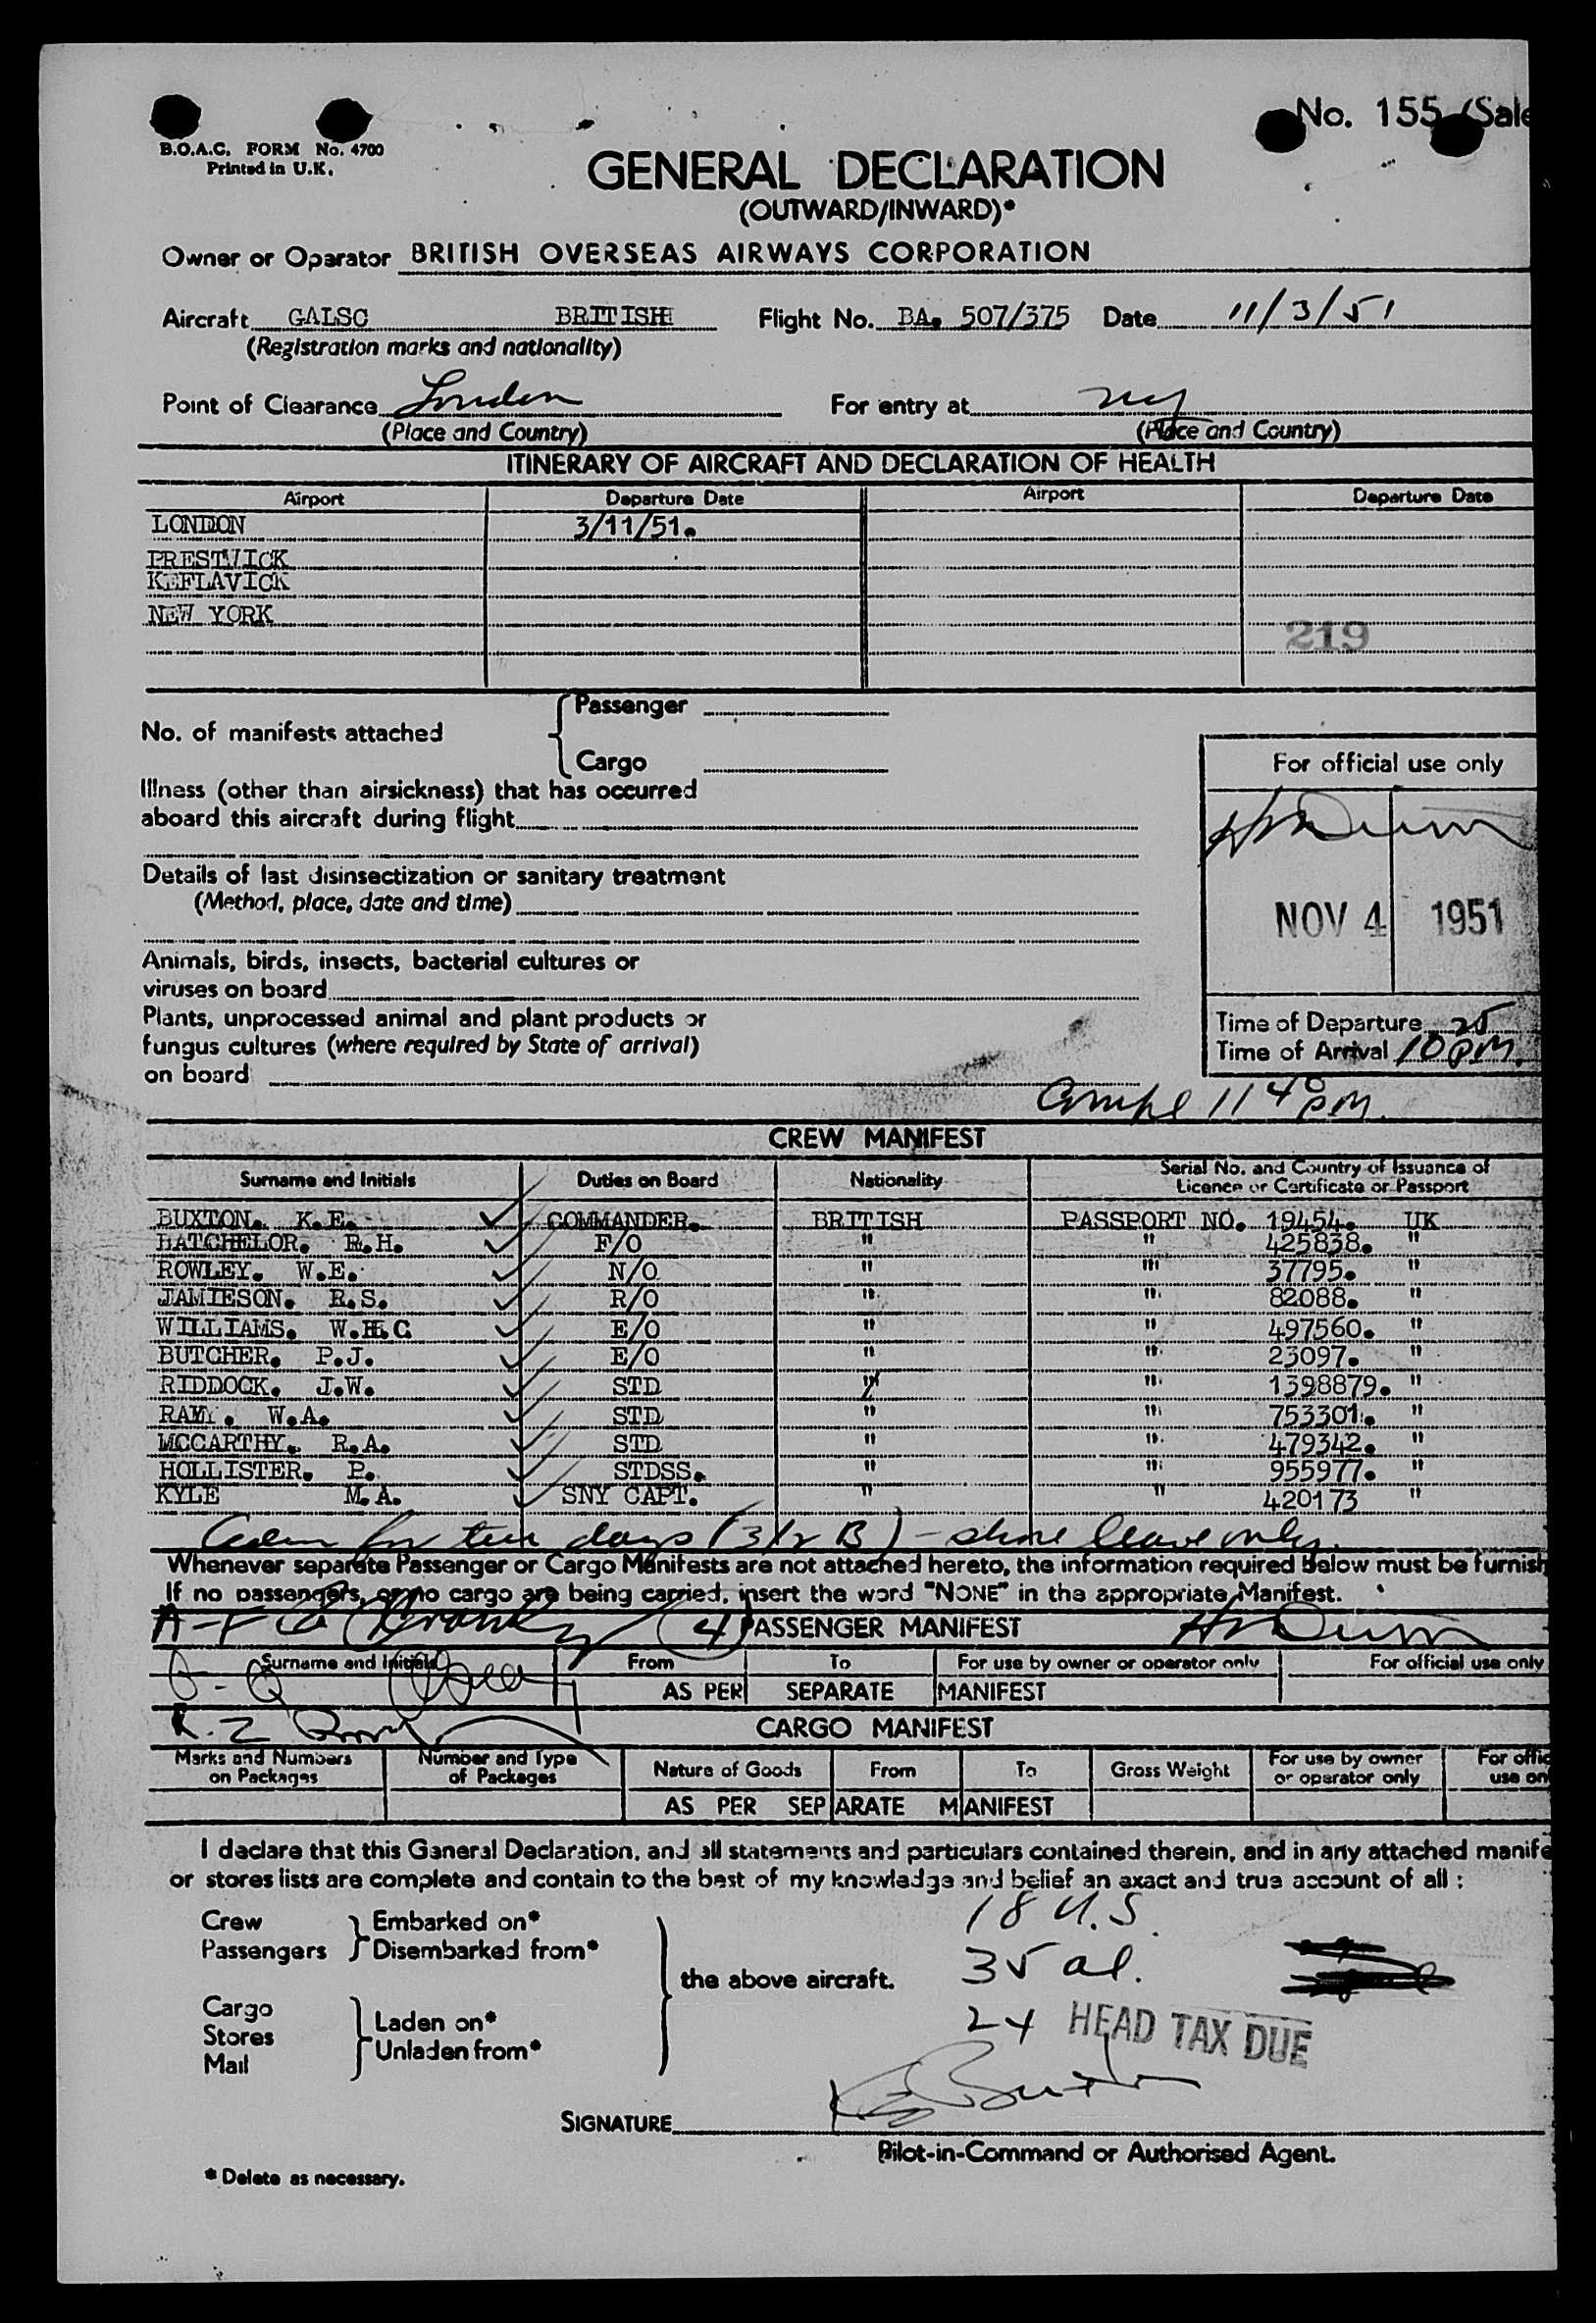 No. 155 (Sale
B.O.A.C. FORM No. 4700
Printed in U.K.
GENERAL DECLARATION
(OUTWARD/INWARD)*
Owner or Operator BRITISH OVERSEAS AIRWAYS CORPORATION
Aircraft GALSC BRITISH Flight No. BA. 507/375 Date 11/3/51
(Registration marks and nationality)
Point of Clearance London For entry at NY
(Place and Country) (Place and Country)
ITINERARY OF AIRCRAFT AND DECLARATION OF HEALTH
Airport Departure Date Airport Departure Date
LONDON 3/11/51.
PRESTWICK
KEFLAVICK
NEW YORK
219
No. of manifests attached { Passenger
Cargo
For official use only
Illness (other than airsickness) that has occurred
aboard this aircraft during flight
Details of last disinsectization or sanitary treatment
(Method, place, date and time)
NOV 4 1951
Animals, birds, insects, bacterial cultures or
viruses on board
Plants, unprocessed animal and plant products or
fungus cultures (where required by State of arrival)
on board
Time of Departure 25
Time of Arrival 10 PM.
Compl 11 40 PM.
CREW MANIFEST
Surname and Initials Duties on Board Nationality Serial No. and Country of Issuance of Licence or Certificate or Passport
BUXTON. K.E. COMMANDER. BRITISH PASSPORT NO. 19454. UK
BATCHELOR. R.H. F/O " " 425838. "
ROWLEY. W.E. N/O " " 37795. "
JAMIESON. R.S. R/O " " 82088. "
WILLIAMS. W.H.C E/O " " 497560. "
BUTCHER. P.J. E/O " " 23097. "
RIDDOCK. J.W. STD " " 1398879. "
W.A. STD " " 753301. "
MCCARTHY. R.A. STD " " 479342. "
HOLLISTER. P. STDSS. " " 955977. "
KYLE M.A. SNY CAPT. " " 420173 "
for ten days (3/2 B) - shore leave only.
Whenever separate Passenger or Cargo Manifests are not attached hereto, the information required below must be furnish
If no passengers, or no cargo are being carried, insert the word "NONE" in the appropriate Manifest.
(4) PASSENGER MANIFEST
Surname and Initials From To For use by owner or operator only For official use only
AS PER SEPARATE MANIFEST
CARGO MANIFEST
Marks and Numbers on Packages Number and Type of Packages Nature of Goods From To Gross Weight For use by owner or operator only For offic use on
AS PER SEPARATE MANIFEST
I declare that this General Declaration, and all statements and particulars contained therein, and in any attached manife
or stores lists are complete and contain to the best of my knowledge and belief an exact and true account of all :
18 U.S.
Crew } Embarked on*
Passengers } Disembarked from*
35 al.
the above aircraft.
Cargo
Stores } Laden on*
Mail } Unladen from*
24 HEAD TAX DUE
SIGNATURE
Pilot-in-Command or Authorised Agent.
* Delete as necessary.